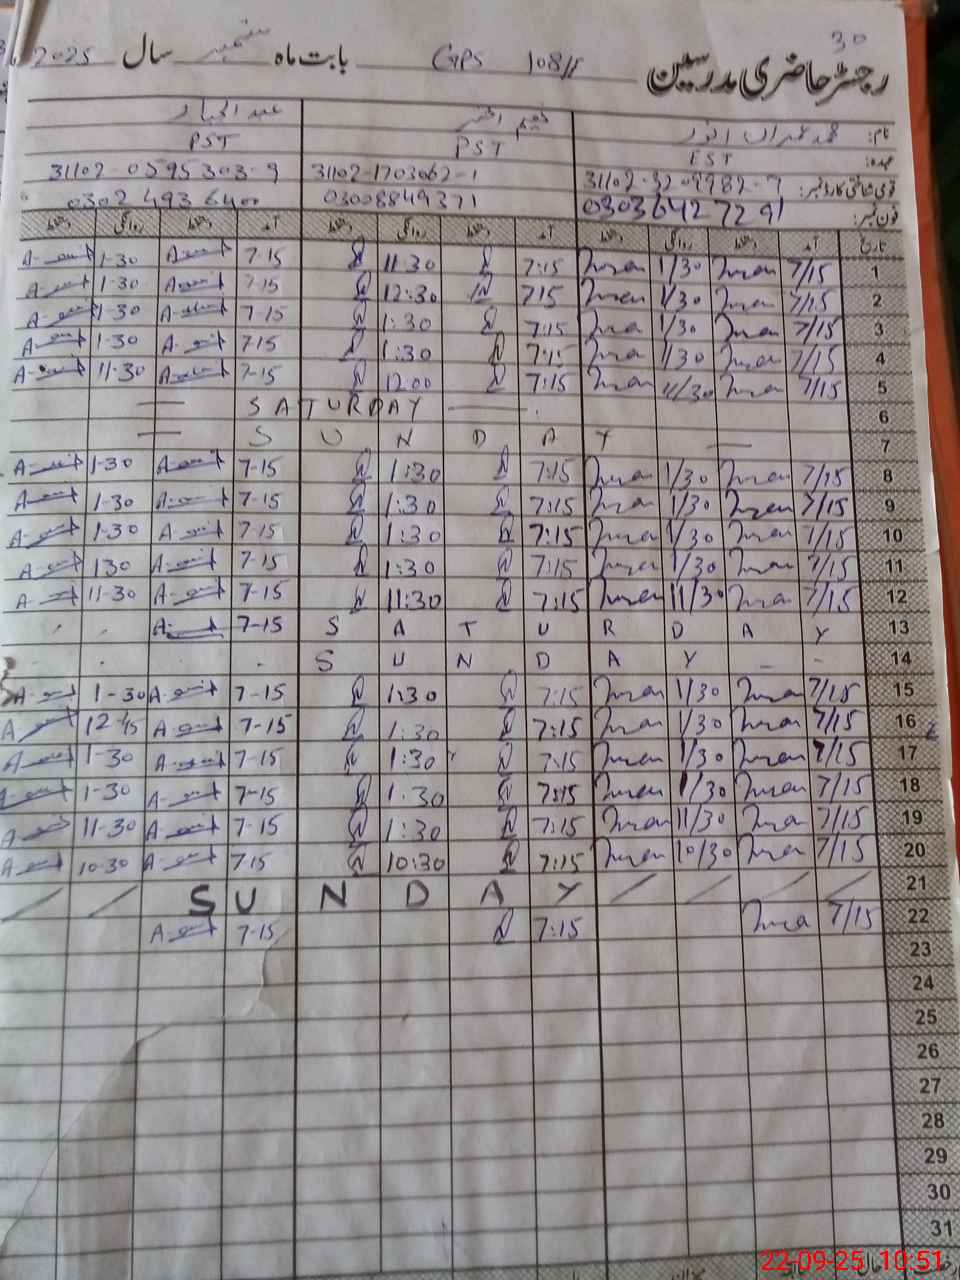 30
رجسٹر حاضری مدرسین GPS 108/F بابت ماہ ستمبر سال 2025
نام: محمد عمران انور نعیم اختر عبدالجبار
عہدہ: EST PST PST
قومی شناختی کارڈ نمبر: 31102-3209982-7 31102-1703062-1 31102-0595303-9
فون نمبر: 03036427291 03008849371 0302 493 6400
تاریخ آمد دستخط روانگی دستخط آمد دستخط روانگی دستخط آمد دستخط روانگی دستخط
1 7/15 Imran 1/30 Imran 7:15 11:30 7-15 1-30
2 7/15 Imran 1/30 Imran 715 12:30 7-15 1-30
3 7/15 Imran 1/30 Imran 7:15 1:30 7-15 1-30
4 7/15 Imran 1/30 Imran 7:15 1:30 7-15 1-30
5 7/15 Imran 11/30 Imran 7:15 12:00 7-15 11-30
6 SATURDAY
7 SUNDAY
8 7/15 Imran 1/30 Imran 7:15 1:30 7-15 1-30
9 7/15 Imran 1/30 Imran 7:15 1:30 7-15 1-30
10 7/15 Imran 1/30 Imran 7:15 1:30 7-15 1-30
11 7/15 Imran 1/30 Imran 7:15 1:30 7-15 130
12 7/15 Imran 11/30 Imran 7:15 11:30 7-15 11-30
13 SATURDAY 7-15
14 SUNDAY
15 7/15 Imran 1/30 Imran 7:15 1:30 7-15 1-30
16 7/15 Imran 1/30 Imran 7:15 1:30 7-15 12-45
17 7/15 Imran 1/30 Imran 7:15 1:30 7-15 1-30
18 7/15 Imran 1/30 Imran 7:15 1:30 7-15 1-30
19 7/15 Imran 11/30 Imran 7:15 1:30 7-15 11-30
20 7/15 Imran 10/30 Imran 7:15 10:30 7-15 10-30
21 SUNDAY
22 7/15 Imran 7:15 7-15
23
24
25
26
27
28
29
30
31
22-09-25 10:51